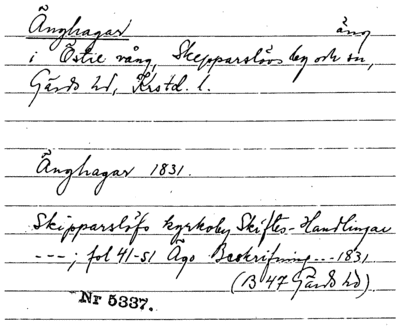 Änghagar äng
i Östre vång, Skepparslövs by och sn,
Gärds hd, Krstd. l.
Änghagar 1831.
Skipparslöfs kyrkoby Skiftes-Handlingar
---; fol 41-51 Ägo Beskrifning --- 1831
(B 47 Gärds hd).
Nr 5337.